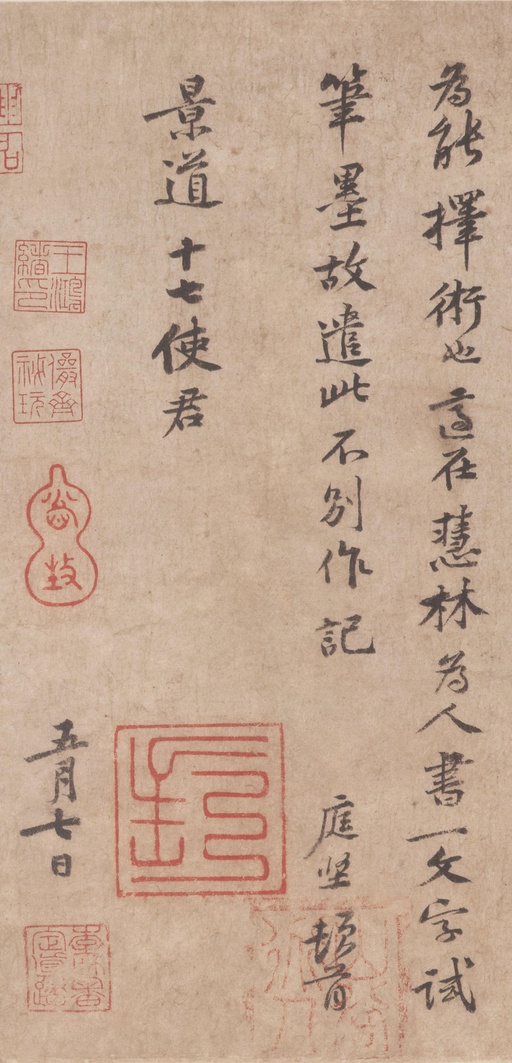 為能擇術也適在慧林為人書一文字試
筆墨故遣此不別作記
庭堅頓首
景道十七使君
五月七日
王鴻緒印
儼齋祕玩